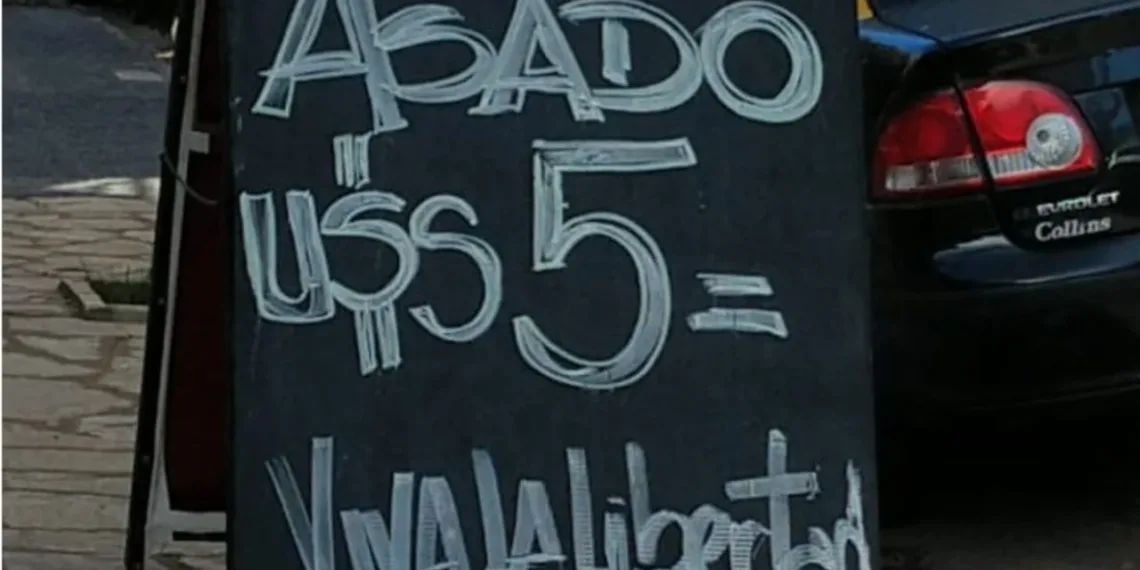 ASADO
U$S 5=
VIVA LA Libertad
EVROLET
Collins